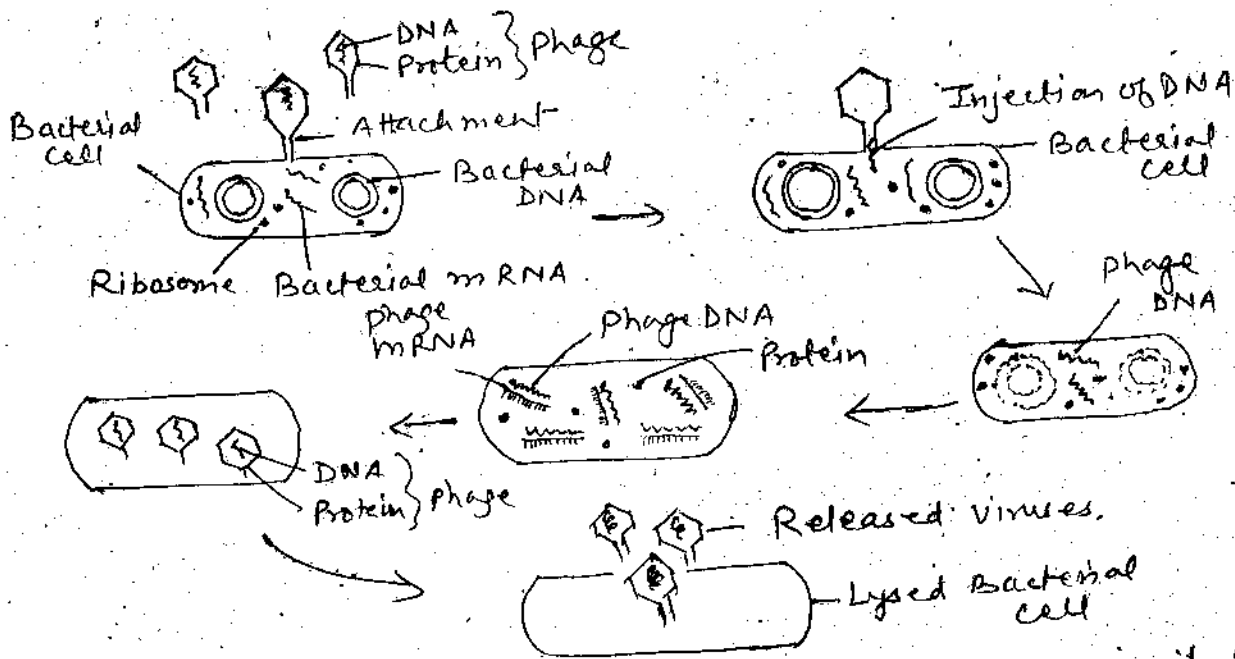 DNA
Protein } Phage
Attachment
Bacterial
cell
Bacterial
DNA
Ribosome
Bacterial mRNA.
Injection of DNA
Bacterial
cell
Phage
DNA
Phage
mRNA
Phage DNA
Protein
DNA
Protein } Phage
Released viruses.
Lysed Bacterial
cell